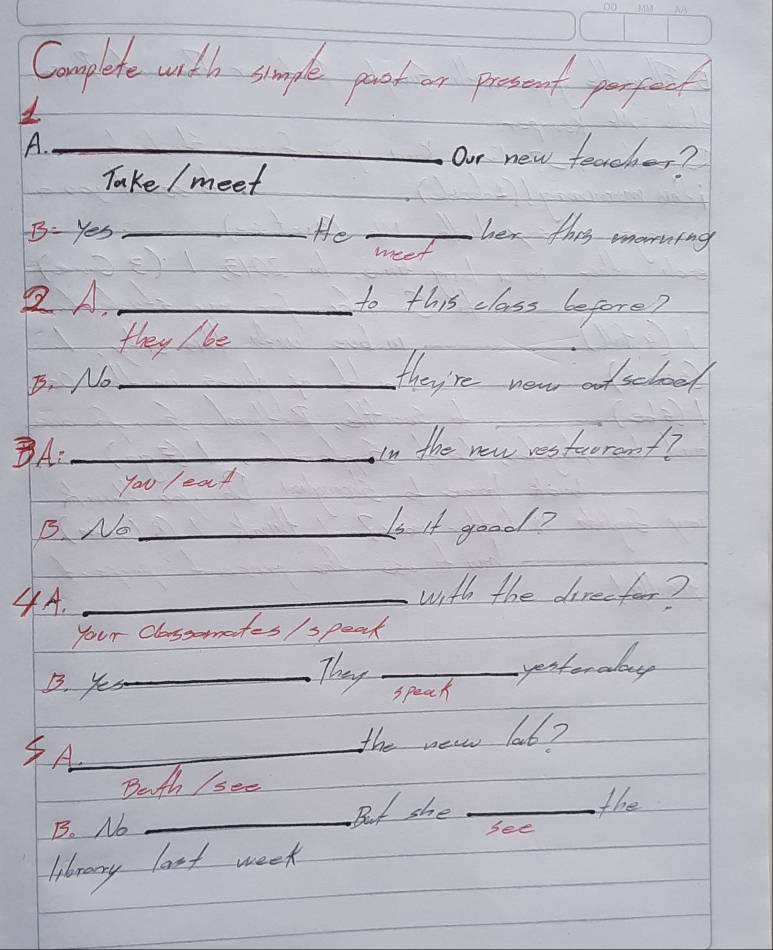 DD MM AA
Complete with simple past or present perfect
1
A. ____________ Our new teacher?
Take / meet
B- Yes ____________ He ________ her this morning
meet
2 A. ____________ to this class before?
they / be
B. No ____________ they're new at school
3 A: ____________ in the new restaurant?
You / eat
B. No ____________ Is it good?
4 A. ____________ with the director?
Your classmates / speak
B. Yes ____________. They ________ yesterday
speak
5 A. ____________ the new lab?
Beth / see
B. No ____________. But she ________ the
see
library last week